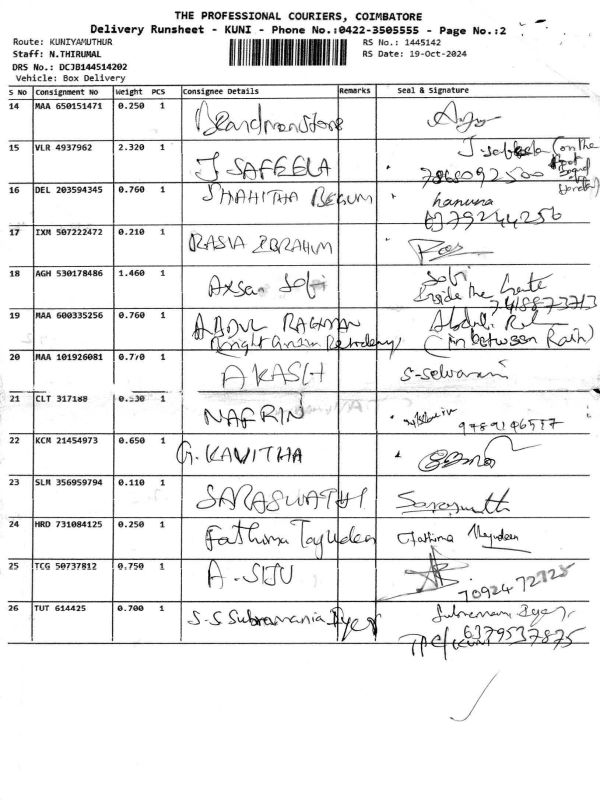 THE PROFESSIONAL COURIERS, COIMBATORE
Delivery Runsheet - KUNI - Phone No.:0422-3505555 - Page No.:2
Route: KUNIYAMUTHUR RS No.: 1445142
Staff: N.THIRUMAL RS Date: 19-Oct-2024
DRS No.: DCJB144514202
Vehicle: Box Delivery
S No Consignment No Weight PCS Consignee Details Remarks Seal & Signature
14 MAA 650151471 0.250 1
15 VLR 4937962 2.320 1 J SAFEELA J-safeela (on the
7868092500
16 DEL 203594345 0.760 1 SHAHITHA BEGUM
6379244256
17 IXM 507222472 0.210 1 RASIA IBRAHIM
18 AGH 530178486 1.460 1 Sofi Sofi
Inside the Gate
7418873713
19 MAA 600335256 0.760 1 ABDUL RAGMAN Abdul
(in between Rain)
20 MAA 101926081 0.770 1 AKASH S-Selvarani
21 CLT 317188 0.530 1 NAFRIN
9789146517
22 KCM 21454973 0.650 1 G. KAVITHA
23 SLM 356959794 0.110 1 SARASWATHI
24 HRD 731084125 0.250 1 Fathima Tajudeen Fathima
25 TCG 50737812 0.750 1 A-SIJU
70924 72725
26 TUT 614425 0.700 1 S-S Subramania Iyer Subramani Iyer
6379537875
TPC/KUNI